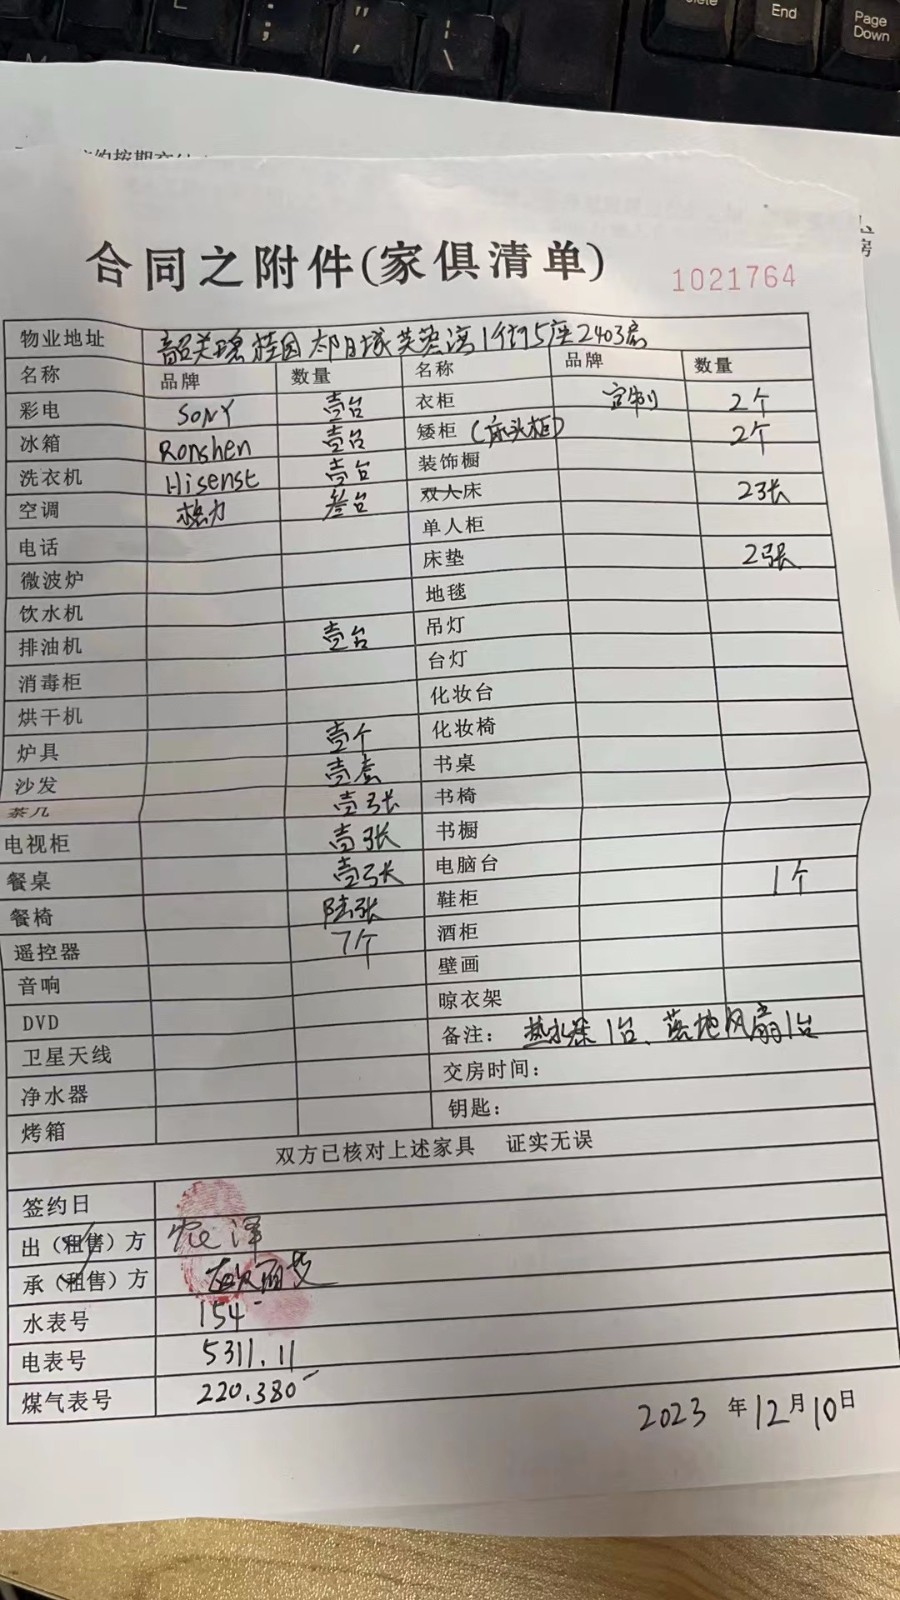 End
Page
Down
合同之附件(家俱清单)
1021764
物业地址 韶关碧桂园太阳城芙蓉湾1街5座2403房
名称 品牌 数量 名称 品牌 数量
彩电 SONY 壹台 衣柜 定制 2个
冰箱 Ronshen 壹台 矮柜(床头柜) 2个
洗衣机 Hisense 壹台 装饰橱
空调 格力 叁台 双人床 2张
电话 单人柜
微波炉 床垫 2张
饮水机 地毯
排油机 壹台 吊灯
消毒柜 台灯
烘干机 化妆台
炉具 壹个 化妆椅
沙发 壹套 书桌
茶几 壹张 书椅
电视柜 壹张 书橱
餐桌 壹张 电脑台
餐椅 陆张 鞋柜 1个
遥控器 7个 酒柜
音响 壁画
DVD 晾衣架
卫星天线 备注: 热水器1台、落地风扇1台
净水器 交房时间:
烤箱 钥匙:
双方已核对上述家具 证实无误
签约日
出(租售)方
承(租售)方
水表号 154
电表号 5311.11
煤气表号 220.380
2023年12月10日